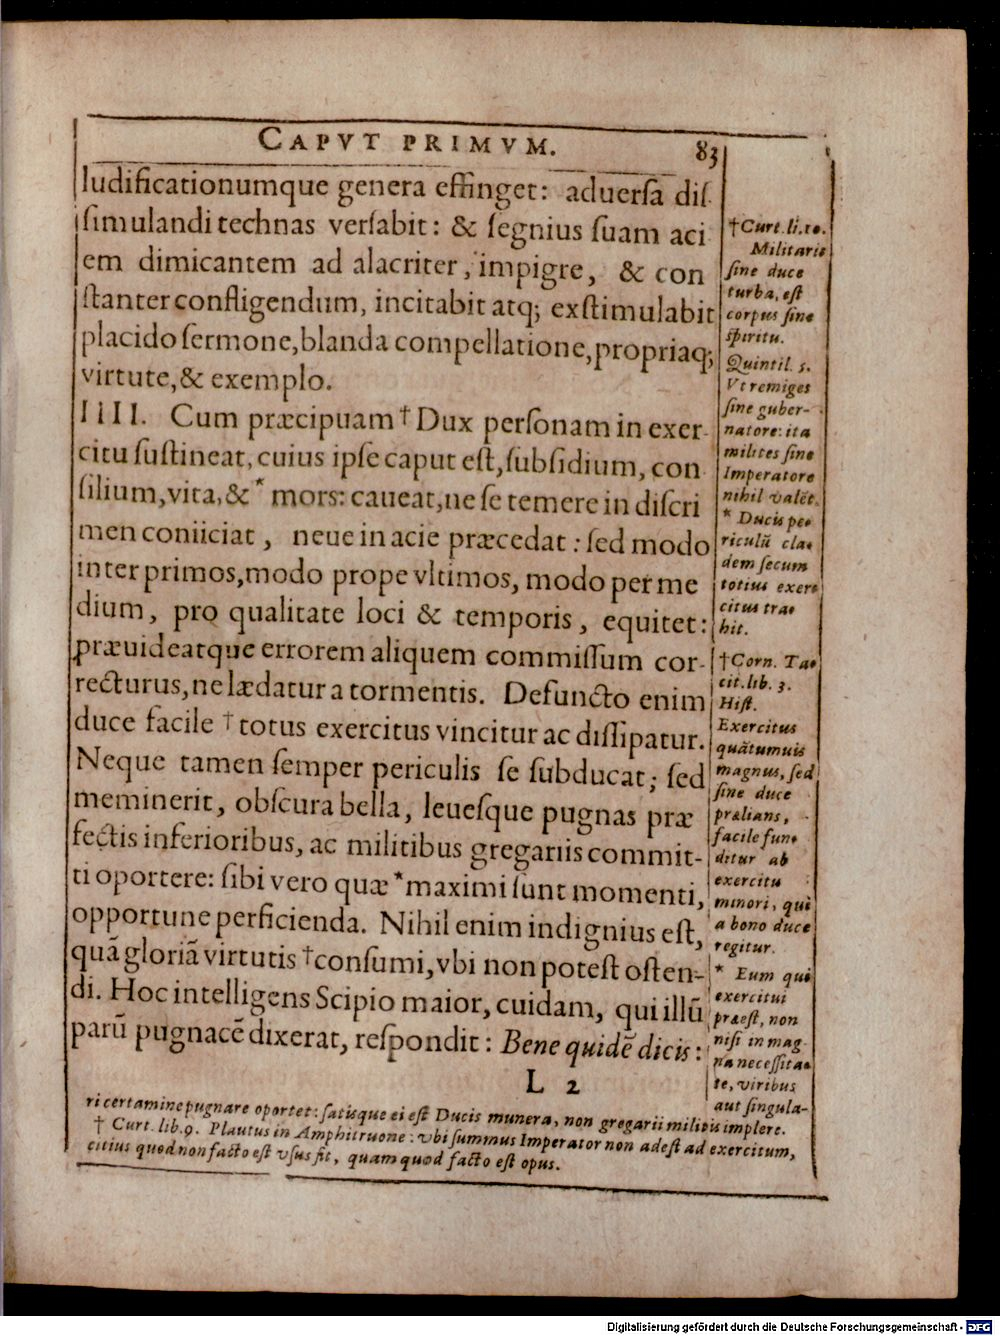 CAPVT PRIMVM. 83
ludificationumque genera effinget: aduersa dis-
simulandi technas versabit: & segnius suam aci
em dimicantem ad alacriter, impigre, & con
stanter confligendum, incitabit atq; exstimulabit
placido sermone, blanda compellatione, propriaq;
virtute, & exemplo.
IIII. Cum præcipuam † Dux personam in exer-
citu sustineat, cuius ipse caput est, subsidium, con
silium, vita, & * mors: caueat, ne se temere in discri
men coniiciat, neue in acie præcedat: sed modo
inter primos, modo prope vltimos, modo per me
dium, pro qualitate loci & temporis, equitet:
præuideatque errorem aliquem commissum cor-
recturus, ne lædatur a tormentis. Defuncto enim
duce facile † totus exercitus vincitur ac dissipatur.
Neque tamen semper periculis se subducat; sed
meminerit, obscura bella, leuesque pugnas præ
fectis inferioribus, ac militibus gregariis commit-
ti oportere: sibi vero quæ * maximi sunt momenti,
opportune perficienda. Nihil enim indignius est,
quã gloriã virtutis † consumi, vbi non potest osten-
di. Hoc intelligens Scipio maior, cuidam, qui illũ
parũ pugnacẽ dixerat, respondit: Bene quidẽ dicis:
L 2
† Curt. li. 10.
Militaris
sine duce
turba, est
corpus sine
spiritu.
Quintil. 5.
Vt remiges
sine guber-
natore: ita
milites sine
Imperatore
nihil valẽt.
* Ducis pe-
riculũ cla-
dem secum
totius exer-
citus tra-
hit.
† Corn. Ta-
cit. lib. 3.
Hist.
Exercitus
quãtumuis
magnus, sed
sine duce
prælians,
facile fun-
ditur ab
exercitu
minori, qui
a bono duce
regitur.
* Eum qui
exercitui
præest, non
nisi in mag-
na necessita-
te, viribus
aut singula-
ri certamine pugnare oportet: satisque ei est Ducis munera, non gregarii militis implere.
† Curt. lib. 9. Plautus in Amphitruone: vbi summus Imperator non adest ad exercitum,
citius quod non facto est vsus fit, quam quod facto est opus.
Digitalisierung gefördert durch die Deutsche Forschungsgemeinschaft - DFG